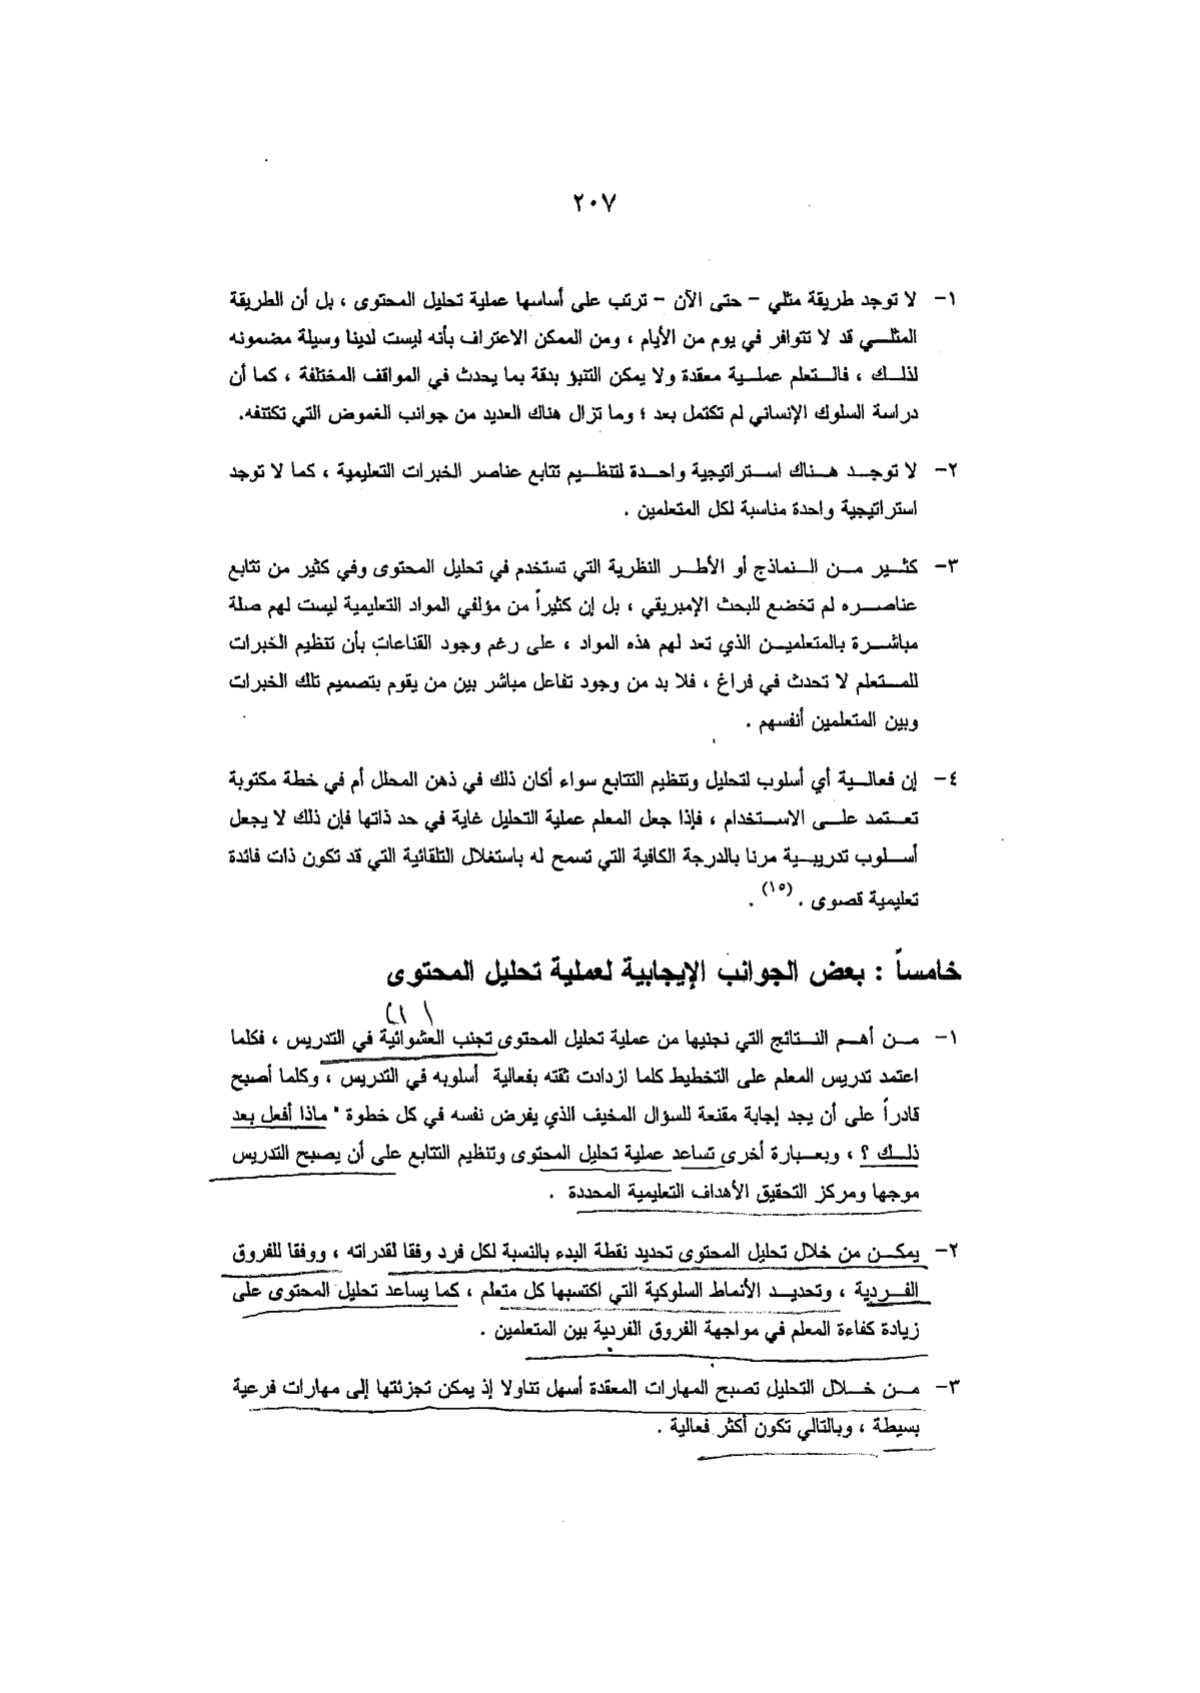 ٢٠٧
١- لا توجد طريقة مثلي - حتى الآن - ترتب على أساسها عملية تحليل المحتوى ، بل أن الطريقة
المثلي قد لا تتوافر في يوم من الأيام ، ومن الممكن الاعتراف بأنه ليست لدينا وسيلة مضمونه
لذلك ، فالتعلم عملية معقدة ولا يمكن التنبؤ بدقة بما يحدث في المواقف المختلفة ، كما أن
دراسة السلوك الإنساني لم تكتمل بعد ؛ وما تزال هناك العديد من جوانب الغموض التي تكتنفه.
٢- لا توجد هناك استراتيجية واحدة لتنظيم تتابع عناصر الخبرات التعليمية ، كما لا توجد
استراتيجية واحدة مناسبة لكل المتعلمين .
٣- كثير من النماذج أو الأطر النظرية التي تستخدم في تحليل المحتوى وفي كثير من تتابع
عناصره لم تخضع للبحث الإمبريقي ، بل إن كثيراً من مؤلفي المواد التعليمية ليست لهم صلة
مباشرة بالمتعلمين الذي تعد لهم هذه المواد ، على رغم وجود القناعات بأن تنظيم الخبرات
للمتعلم لا تحدث في فراغ ، فلا بد من وجود تفاعل مباشر بين من يقوم بتصميم تلك الخبرات
وبين المتعلمين أنفسهم .
٤- إن فعالية أي أسلوب لتحليل وتنظيم التتابع سواء أكان ذلك في ذهن المحلل أم في خطة مكتوبة
تعتمد على الاستخدام ، فإذا جعل المعلم عملية التحليل غاية في حد ذاتها فإن ذلك لا يجعل
أسلوب تدريبية مرنا بالدرجة الكافية التي تسمح له باستغلال التلقائية التي قد تكون ذات فائدة
تعليمية قصوى . (١٥) .
خامساً : بعض الجوانب الإيجابية لعملية تحليل المحتوى
١- من أهم النتائج التي نجنيها من عملية تحليل المحتوى تجنب العشوائية في التدريس ، فكلما
اعتمد تدريس المعلم على التخطيط كلما ازدادت ثقته بفعالية أسلوبه في التدريس ، وكلما أصبح
قادراً على أن يجد إجابة مقنعة للسؤال المخيف الذي يفرض نفسه في كل خطوة " ماذا أفعل بعد
ذلك ؟ ، وبعبارة أخرى تساعد عملية تحليل المحتوى وتنظيم التتابع على أن يصبح التدريس
موجها ومركز التحقيق الأهداف التعليمية المحددة .
٢- يمكن من خلال تحليل المحتوى تحديد نقطة البدء بالنسبة لكل فرد وفقا لقدراته ، ووفقا للفروق
الفردية ، وتحديد الأنماط السلوكية التي اكتسبها كل متعلم ، كما يساعد تحليل المحتوى على
زيادة كفاءة المعلم في مواجهة الفروق الفردية بين المتعلمين .
٣- من خلال التحليل تصبح المهارات المعقدة أسهل تناولا إذ يمكن تجزئتها إلى مهارات فرعية
بسيطة ، وبالتالي تكون أكثر فعالية .